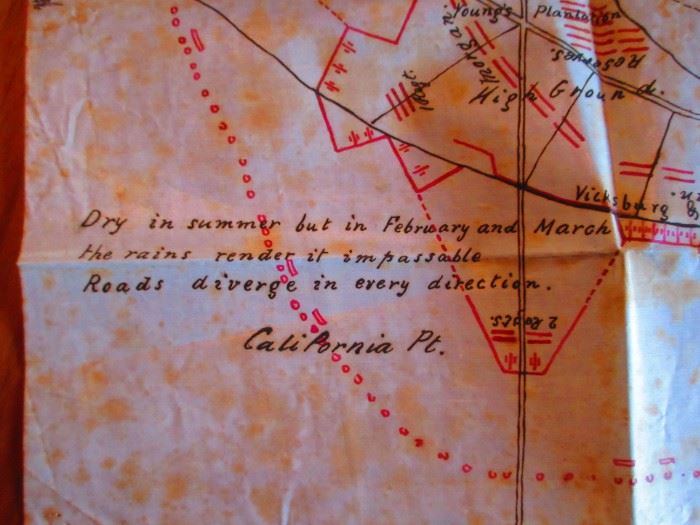 Young's Plantation
Reserves.
Morgan.
High Ground.
Vicksburg
Dry in summer but in February and March
the rains render it impassable
Roads diverge in every direction.
2 Reg'ts.
California Pt.